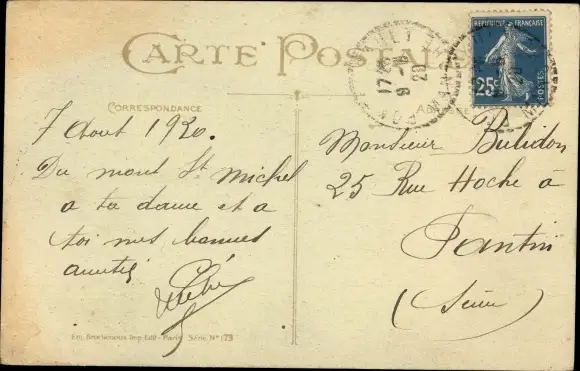 CARTE POSTALE
RÉPUBLIQUE FRANÇAISE
25c
POSTES
CORRESPONDANCE
7 Aout 1920.
Du mont St Michel
a ta dame et a
toi mes bonnes
amitiés
Monsieur Bulidon
25 Rue Hoche à
Pantin
(Seine)
17 30
9 - 8
20
Em. Brocherioux Imp.-Edit - Paris Série No 173